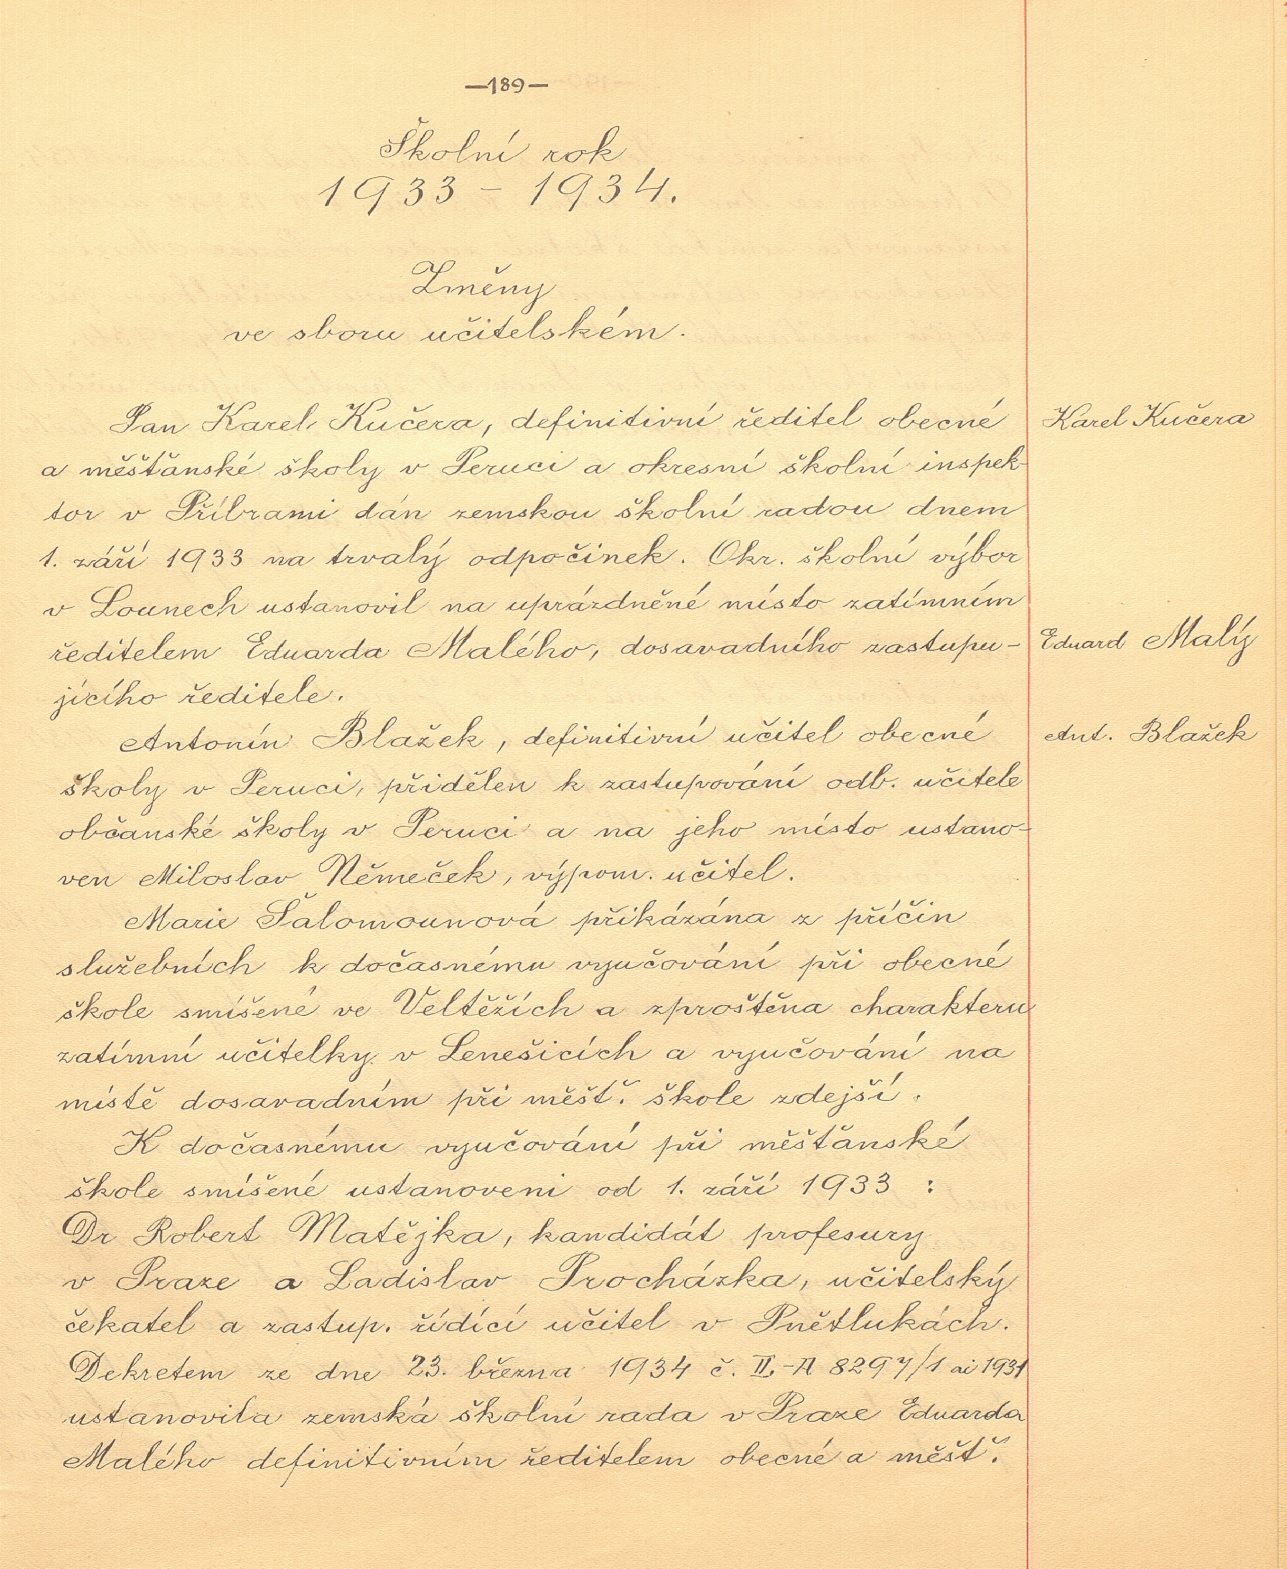 —189—
Školní rok
1933 – 1934.
Změny
ve sboru učitelském.
Pan Karel Kučera, definitivní ředitel obecné
Karel Kučera
a měšťanské školy v Peruci a okresní školní inspek-
tor v Příbrami dán zemskou školní radou dnem
1. září 1933 na trvalý odpočinek. Okr. školní výbor
v Lounech ustanovil na uprázdněné místo zatímním
ředitelem Eduarda Malého, dosavadního zastupu-
Eduard Malý
jícího ředitele.
Antonín Blažek, definitivní učitel obecné
Ant. Blažek
školy v Peruci, přidělen k zastupování odb. učitele
občanské školy v Peruci a na jeho místo ustano-
ven Miloslav Němeček, výpom. učitel.
Marie Šalomounová přikázána z příčin
služebních k dočasnému vyučování při obecné
škole smíšené ve Veltěžích a zproštěna charakteru
zatímní učitelky v Lenešicích a vyučování na
místě dosavadním při měšť. škole zdejší.
K dočasnému vyučování při měšťanské
škole smíšené ustanoveni od 1. září 1933 :
Dr Robert Matějka, kandidát profesury
v Praze a Ladislav Procházka, učitelský
čekatel a zastup. řídící učitel v Pnětlukách.
Dekretem ze dne 23. března 1934 č. II.-A 8297/1 ai 1931
ustanovila zemská školní rada v Praze Eduarda
Malého definitivním ředitelem obecné a měšť.